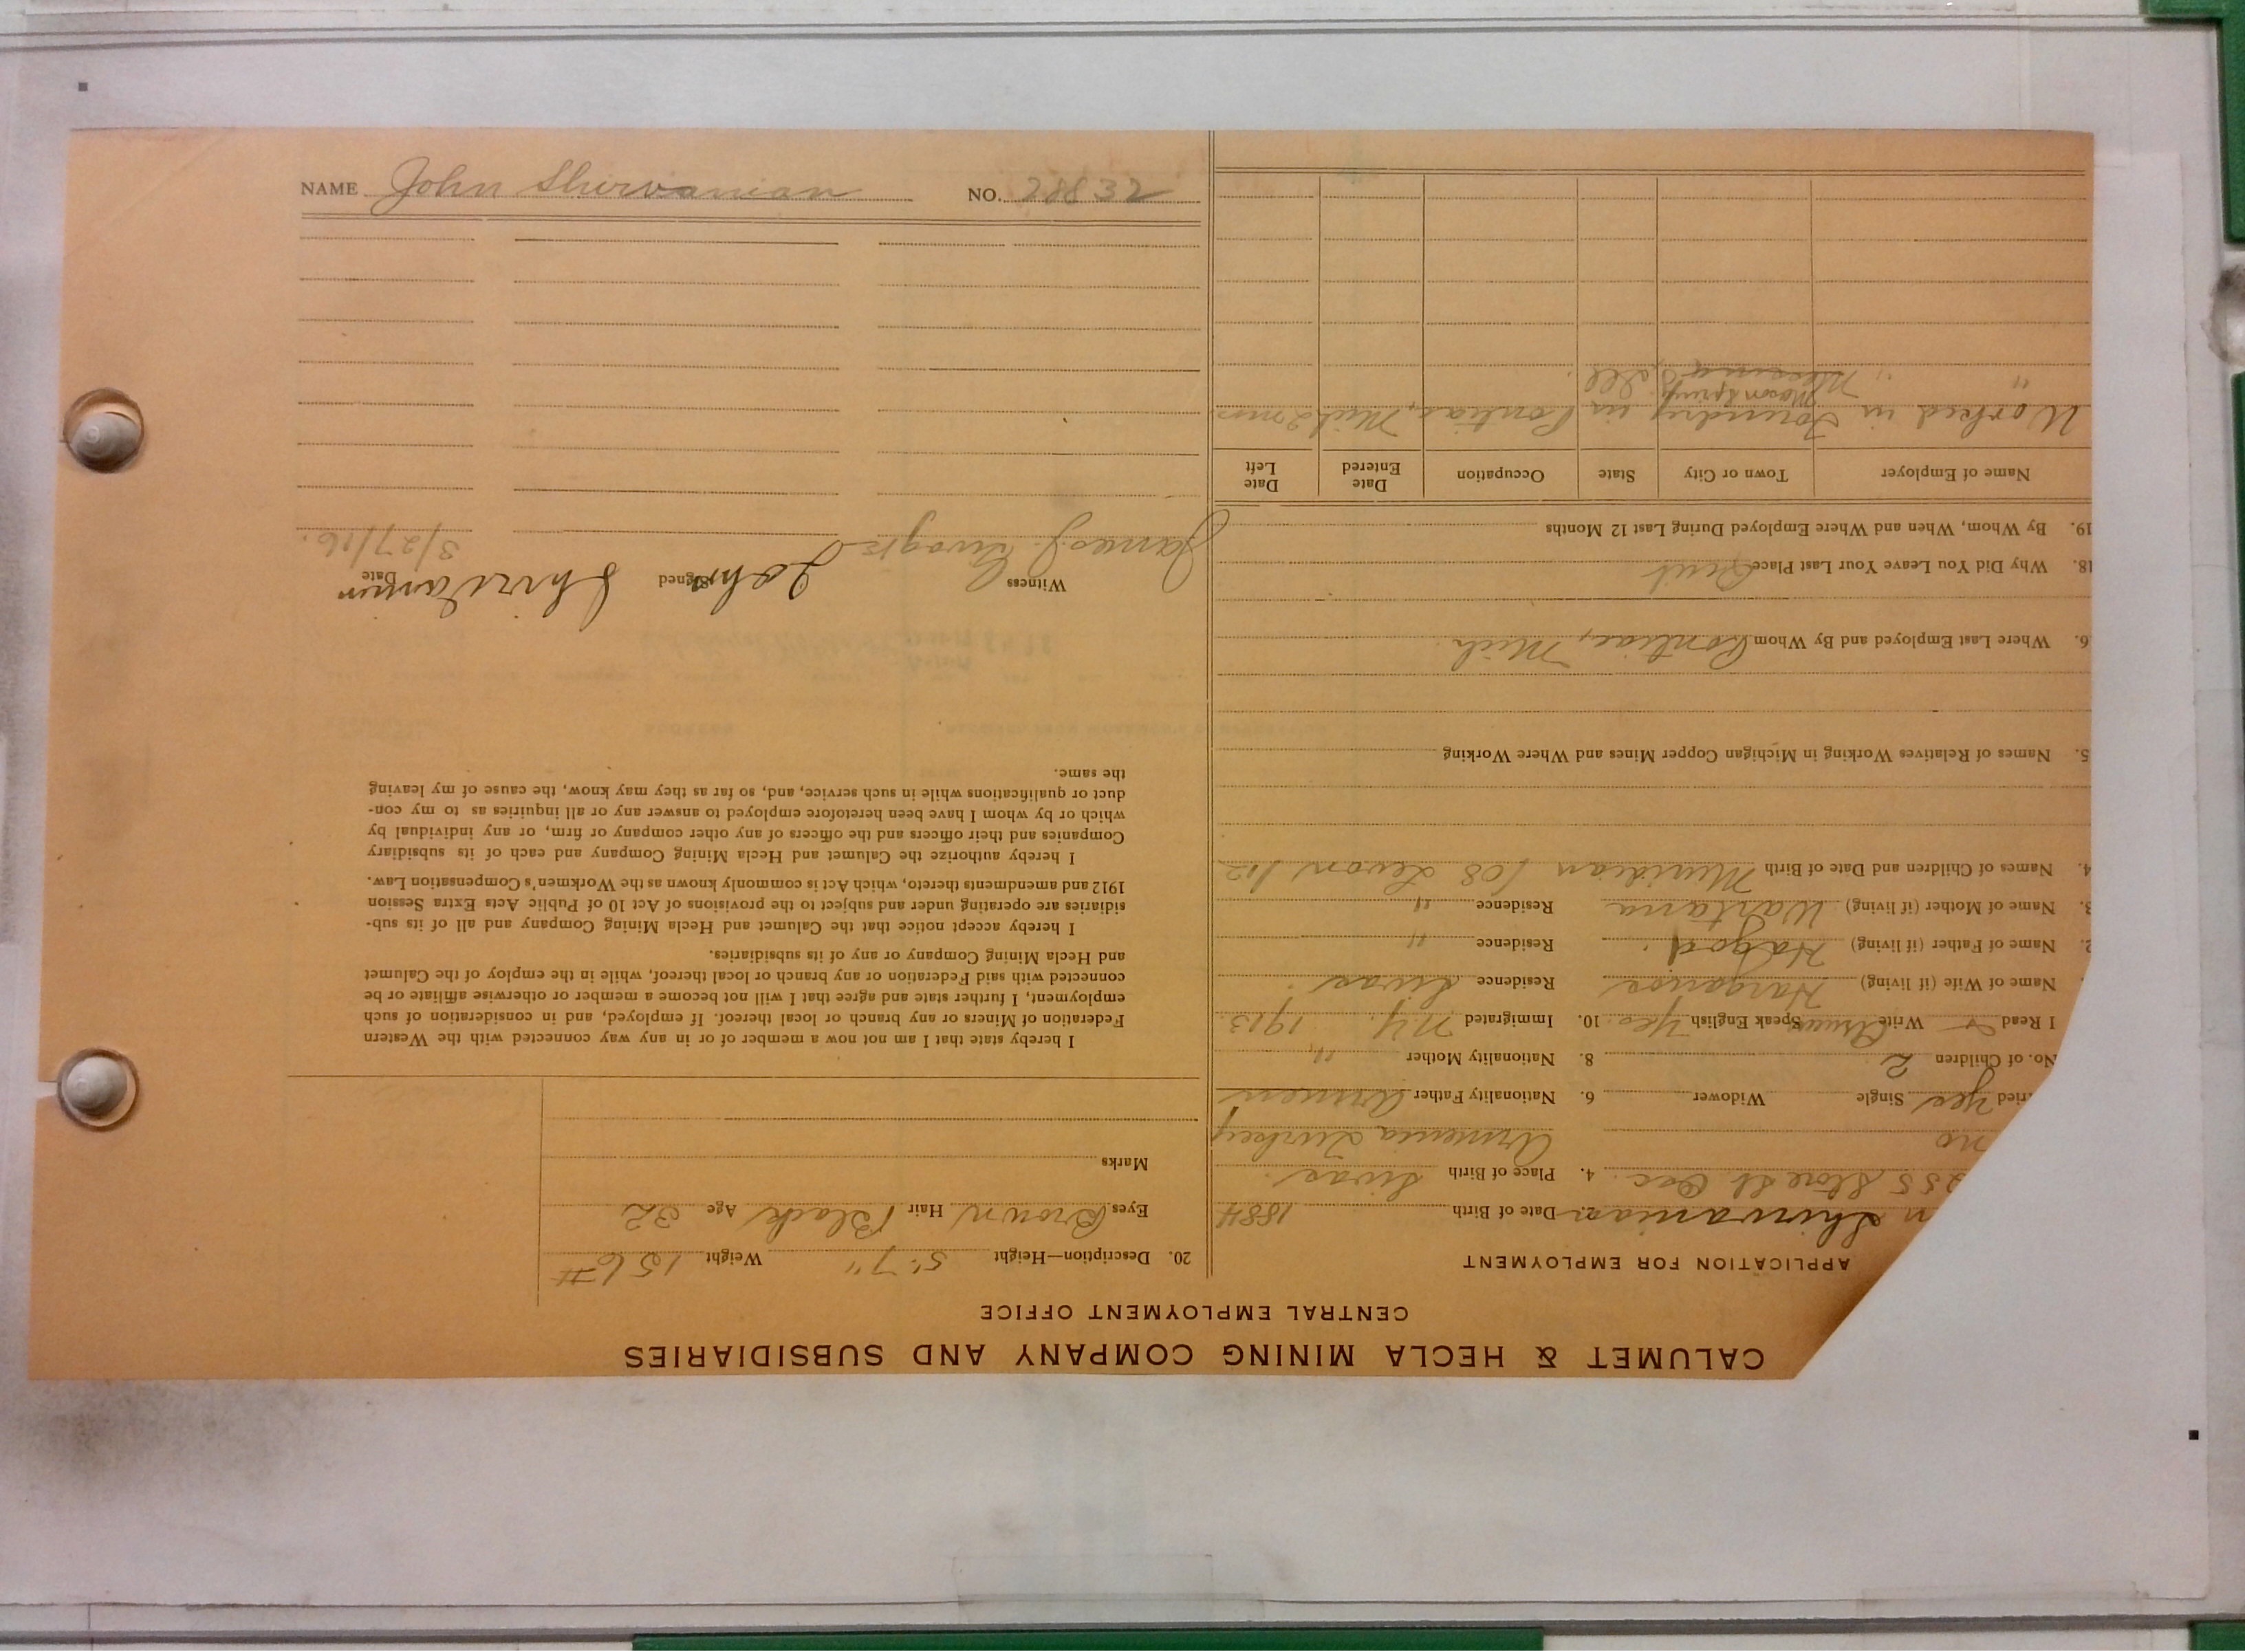 NAME John Shirvanian NO. 28832
CALUMET & HECLA MINING COMPANY AND SUBSIDIARIES
CENTRAL EMPLOYMENT OFFICE
APPLICATION FOR EMPLOYMENT
n Shirvanian 2. Date of Birth 1884
255 Stone St. 4. Place of Birth Sivas
no Armenia Turkey
ried yes Single Widower 6. Nationality Father Armen
No. of Children 2 8. Nationality Mother "
I Read Write Speak English yes 10. Immigrated N.Y. 1913
Name of Wife (if living) Residence Sivas
2. Name of Father (if living) Residence "
3. Name of Mother (if living) Wartana Residence "
4. Names of Children and Date of Birth /08 Levon /12
5. Names of Relatives Working in Michigan Copper Mines and Where Working
6. Where Last Employed and By Whom Pontiac, Mich.
18. Why Did You Leave Your Last Place Quit
19. By Whom, When and Where Employed During Last 12 Months
Name of Employer Town or City State Occupation Date Entered Date Left
Worked in Foundry in Pontiac, Mich 2 mos
" " Ill
20. Description—Height 5' 7" Weight 156 #
Eyes Brown Hair Black Age 32
Marks
I hereby state that I am not now a member of or in any way connected with the Western
Federation of Miners or any branch or local thereof. If employed, and in consideration of such
employment, I further state and agree that I will not become a member or otherwise affiliate or be
connected with said Federation or any branch or local thereof, while in the employ of the Calumet
and Hecla Mining Company or any of its subsidiaries.
I hereby accept notice that the Calumet and Hecla Mining Company and all of its sub-
sidiaries are operating under and subject to the provisions of Act 10 of Public Acts Extra Session
1912 and amendments thereto, which Act is commonly known as the Workmen's Compensation Law.
I hereby authorize the Calumet and Hecla Mining Company and each of its subsidiary
Companies and their officers and the officers of any other company or firm, or any individual by
which or by whom I have been heretofore employed to answer any or all inquiries as to my con-
duct or qualifications while in such service, and, so far as they may know, the cause of my leaving
the same.
Witness Signed John Date
James J. 3/27/16.